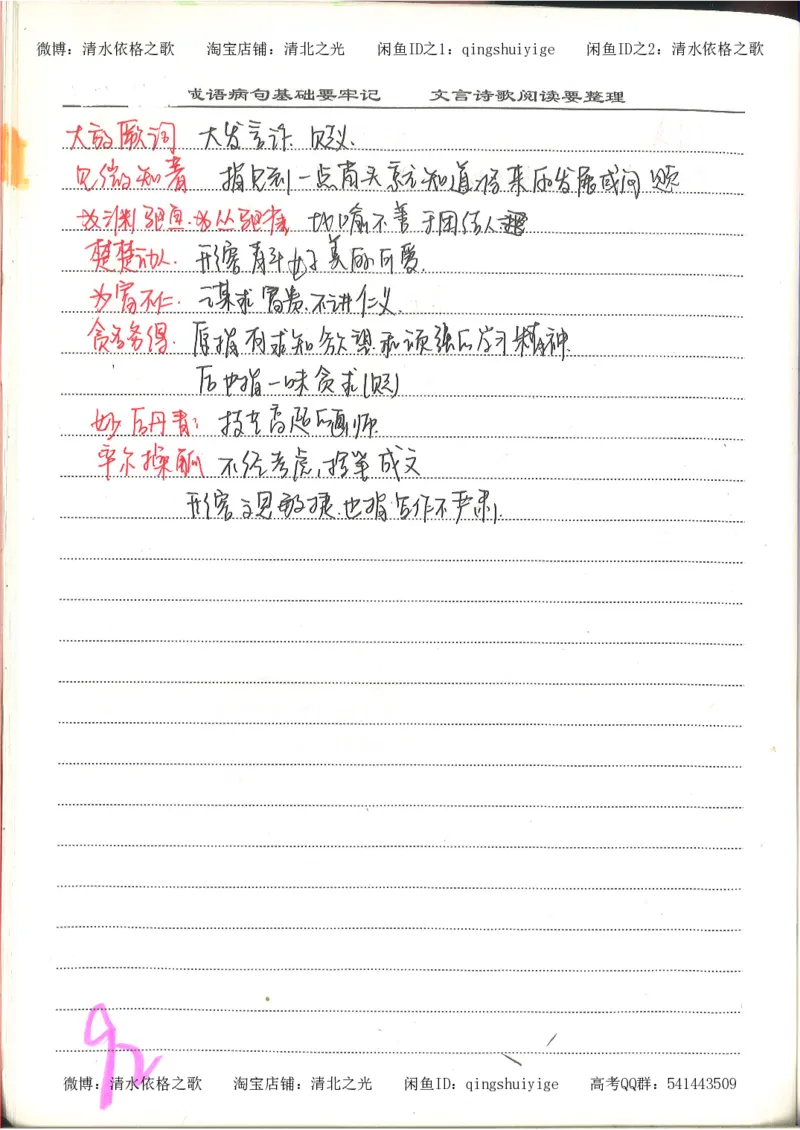 微博：清水依格之歌 淘宝店铺：清北之光 闲鱼ID之1：qingshuiyige 闲鱼ID之2：清水依格之歌
成语病句基础要牢记 文言诗歌阅读要整理
大放厥词 大发言论. 贬义.
见微知著 指见到一点苗头就知道将来的发展或问题
为渊驱鱼.为丛驱雀 比喻不善于团结人
楚楚动人. 形容青年女子美的可爱.
为富不仁. 谋求富贵.不讲仁义.
贪多务得. 原指有求知欲望和顽强的学习精神.
后也指一味贪求(贬)
妙后丹青： 技艺高超的画师.
率尔操觚 不经考虑，拾笔成文
形容文思敏捷.也指写作不严肃.
92
微博：清水依格之歌 淘宝店铺：清北之光 闲鱼ID：qingshuiyige 高考QQ群：541443509